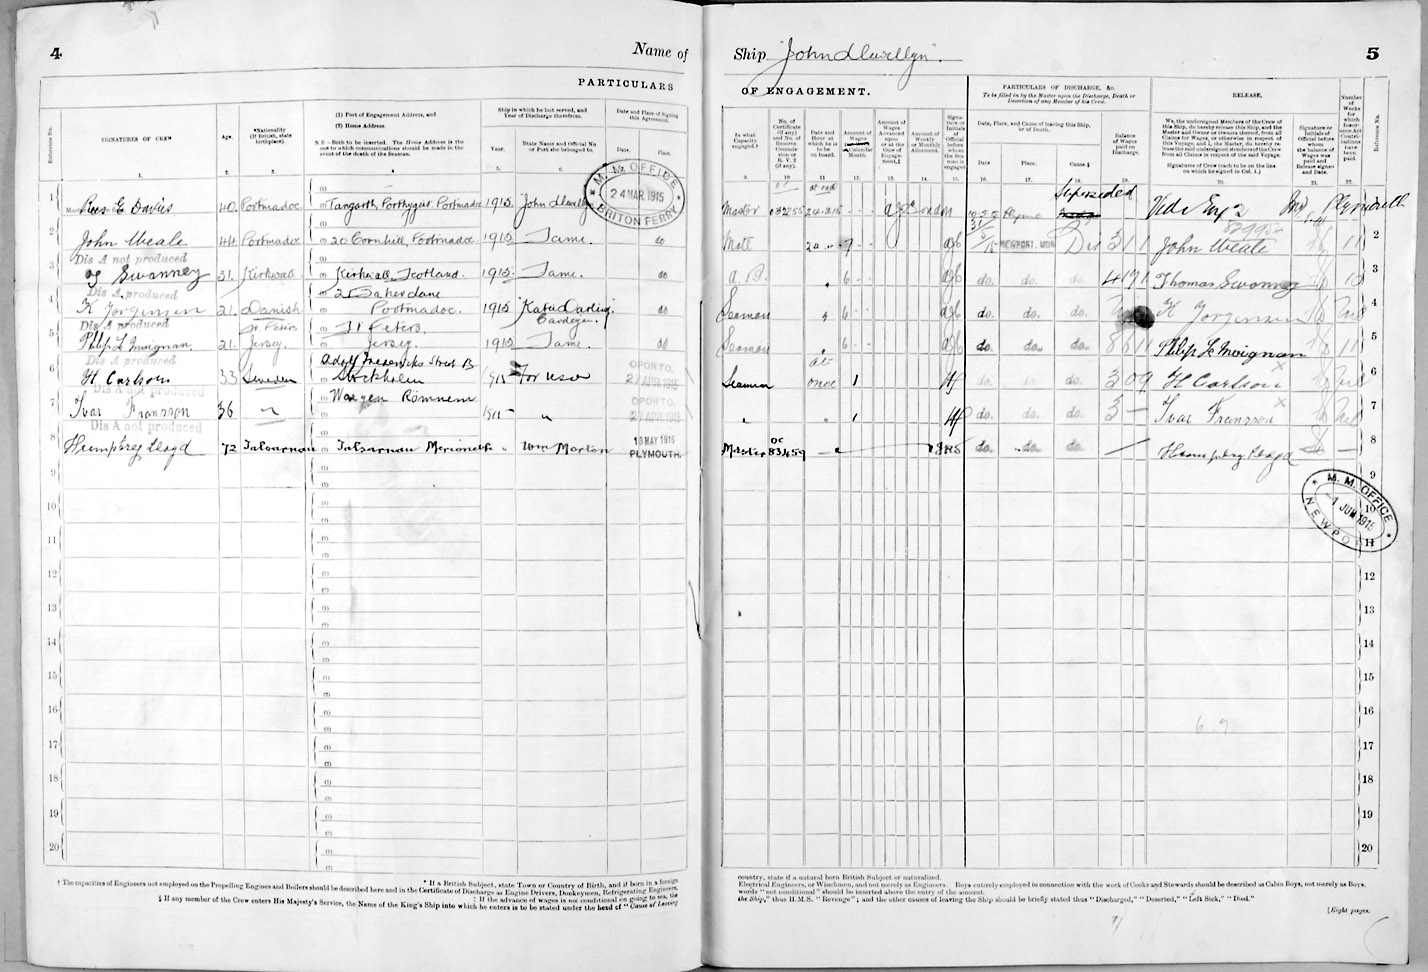 4
Name of
PARTICULARS
Reference No.
SIGNATURES OF CREW
Age.
*Nationality
(If British, state
birthplace).
(1) Port of Engagement Address, and
(2) Home Address.
N.B.—Both to be inserted. The Home Address is the
one to which communications should be made in the
event of the death of the Seaman.
Ship in which he last served, and
Year of Discharge therefrom.
Year.
State Name and Official No.
or Port she belonged to.
Date and Place of Signing
this Agreement.
Date.
Place.
1.
2.
3.
4.
5.
M. M. OFFICE
24 MAR. 1915
BRITON FERRY
1 Rees E Davies 40. Portmadoc Tangarth Porthygest Portmadoc 1915 John Llewellyn
2 John Weale 44 Portmadoc 20 Cornhill, Portmadoc 1915 Same. do
Dis A not produced
3 Swanney 31. Kirkwall Kirkwall Scotland. 1915 Same. do
Dis A. produced
4 K Jorgensen 21. Danish Portmadoc. 1915 Katie Darling Cardigan. do
Dis A produced
St Peters
5 Philip L Moignan. 21. Jersey. St Peters. Jersey. 1915 Same. do
Dis A produced
6 H Carlson 33 Sweden Stockholm 1915 OPORTO. 27 APR. 1915
Dis A not produced
7 Ivar Fransson 36 " 1915 " OPORTO. 27 APR. 1915
Dis A not produced
8 Humphrey Lloyd 72 Talsarnau Talsarnau Merioneth " Wm Morton 13 MAY 1915 PLYMOUTH.
9
10
11
12
13
14
15
16
17
18
19
20
† The capacities of Engineers not employed on the Propelling Engines and Boilers should be described here and in the Certificate of Discharge as Engine Drivers, Donkeymen, Refrigerating Engineers,
* If a British Subject, state Town or Country of Birth, and if born in a foreign
‡ If the advance of wages is not conditional on going to sea, the
§ If any member of the Crew enters His Majesty's Service, the Name of the King's Ship into which he enters is to be stated under the head of "Cause of Leaving
Ship "John Llewellyn".
5
OF ENGAGEMENT.
PARTICULARS OF DISCHARGE, &c.
To be filled in by the Master upon the Discharge, Death or
Desertion of any Member of his Crew.
RELEASE.
In what
Capacity
engaged.†
No. of
Certificate
(if any)
and No. of
Reserve
Commission
or
R. V. 2
(if any).
Date and
Hour at
which he is
to be
on board.
Amount of
Wages
per
Calendar
Month.
Amount of
Wages
Advanced
upon
or at the
time of
Engagement.‡
Amount of
Weekly
or Monthly
Allotment.
Signature
or
Initials
of
Official
before
whom
the Seaman
is
engaged
Date, Place, and Cause of leaving this Ship,
or of Death.
Date
Place.
Cause.§
Balance
of
Wages
paid on
Discharge.
We, the undersigned Members of the Crew of
this Ship, do hereby release this Ship, and the
Master and Owner or Owners thereof, from all
Claims for Wages, or otherwise in respect of
this Voyage, and I, the Master, do hereby release
the said undersigned Members of the Crew
from all Claims in respect of the said Voyage.
Signatures of Crew (each to be on the line
on which he signed in Col. 1.)
Signature or
Initials of
Official before
whom the
balance of
Wages was
paid and
Release signed
and Date.
Number
of
Weeks
for
which
Insurance Act
Contributions
have
been
paid.
Reference No.
9.
10
11.
12.
13.
14.
15.
16.
17.
18.
19.
20.
21.
22.
Master 24.3.15 London Superseded
Mate 7 NEWPORT, MON Dis 3 1 1 John Weale 11 2
A. B. " 6 do. do. do. 4 17 1 Thomas Swanney 10 3
Seaman " 6 do. do. do. K Jorgensen 4
Seaman " 6 do. do. do. 8 6 11 Philip Le Moignan 11 5
Seaman at once 1 do. do. do. 3 0 9 H Carlson × 6
" " 1 do. do. do. 3 — Ivar Fransson × 7
Master 83459 do. do. do. Humphrey Lloyd — 8
9
M. M. OFFICE
1 JUN 1915
NEWPORT
10
11
12
13
14
15
16
17
18
19
20
country, state if a natural born British Subject or naturalized.
Electrical Engineers, or Winchmen, and not merely as Engineers. Boys entirely employed in connection with the work of Cooks and Stewards should be described as Cabin Boys, not merely as Boys.
words "not conditional" should be inserted above the entry of the amount.
the Ship," thus H.M.S. "Revenge"; and the other causes of leaving the Ship should be briefly stated thus "Discharged," "Deserted," "Left Sick," "Died."
[Eight pages.